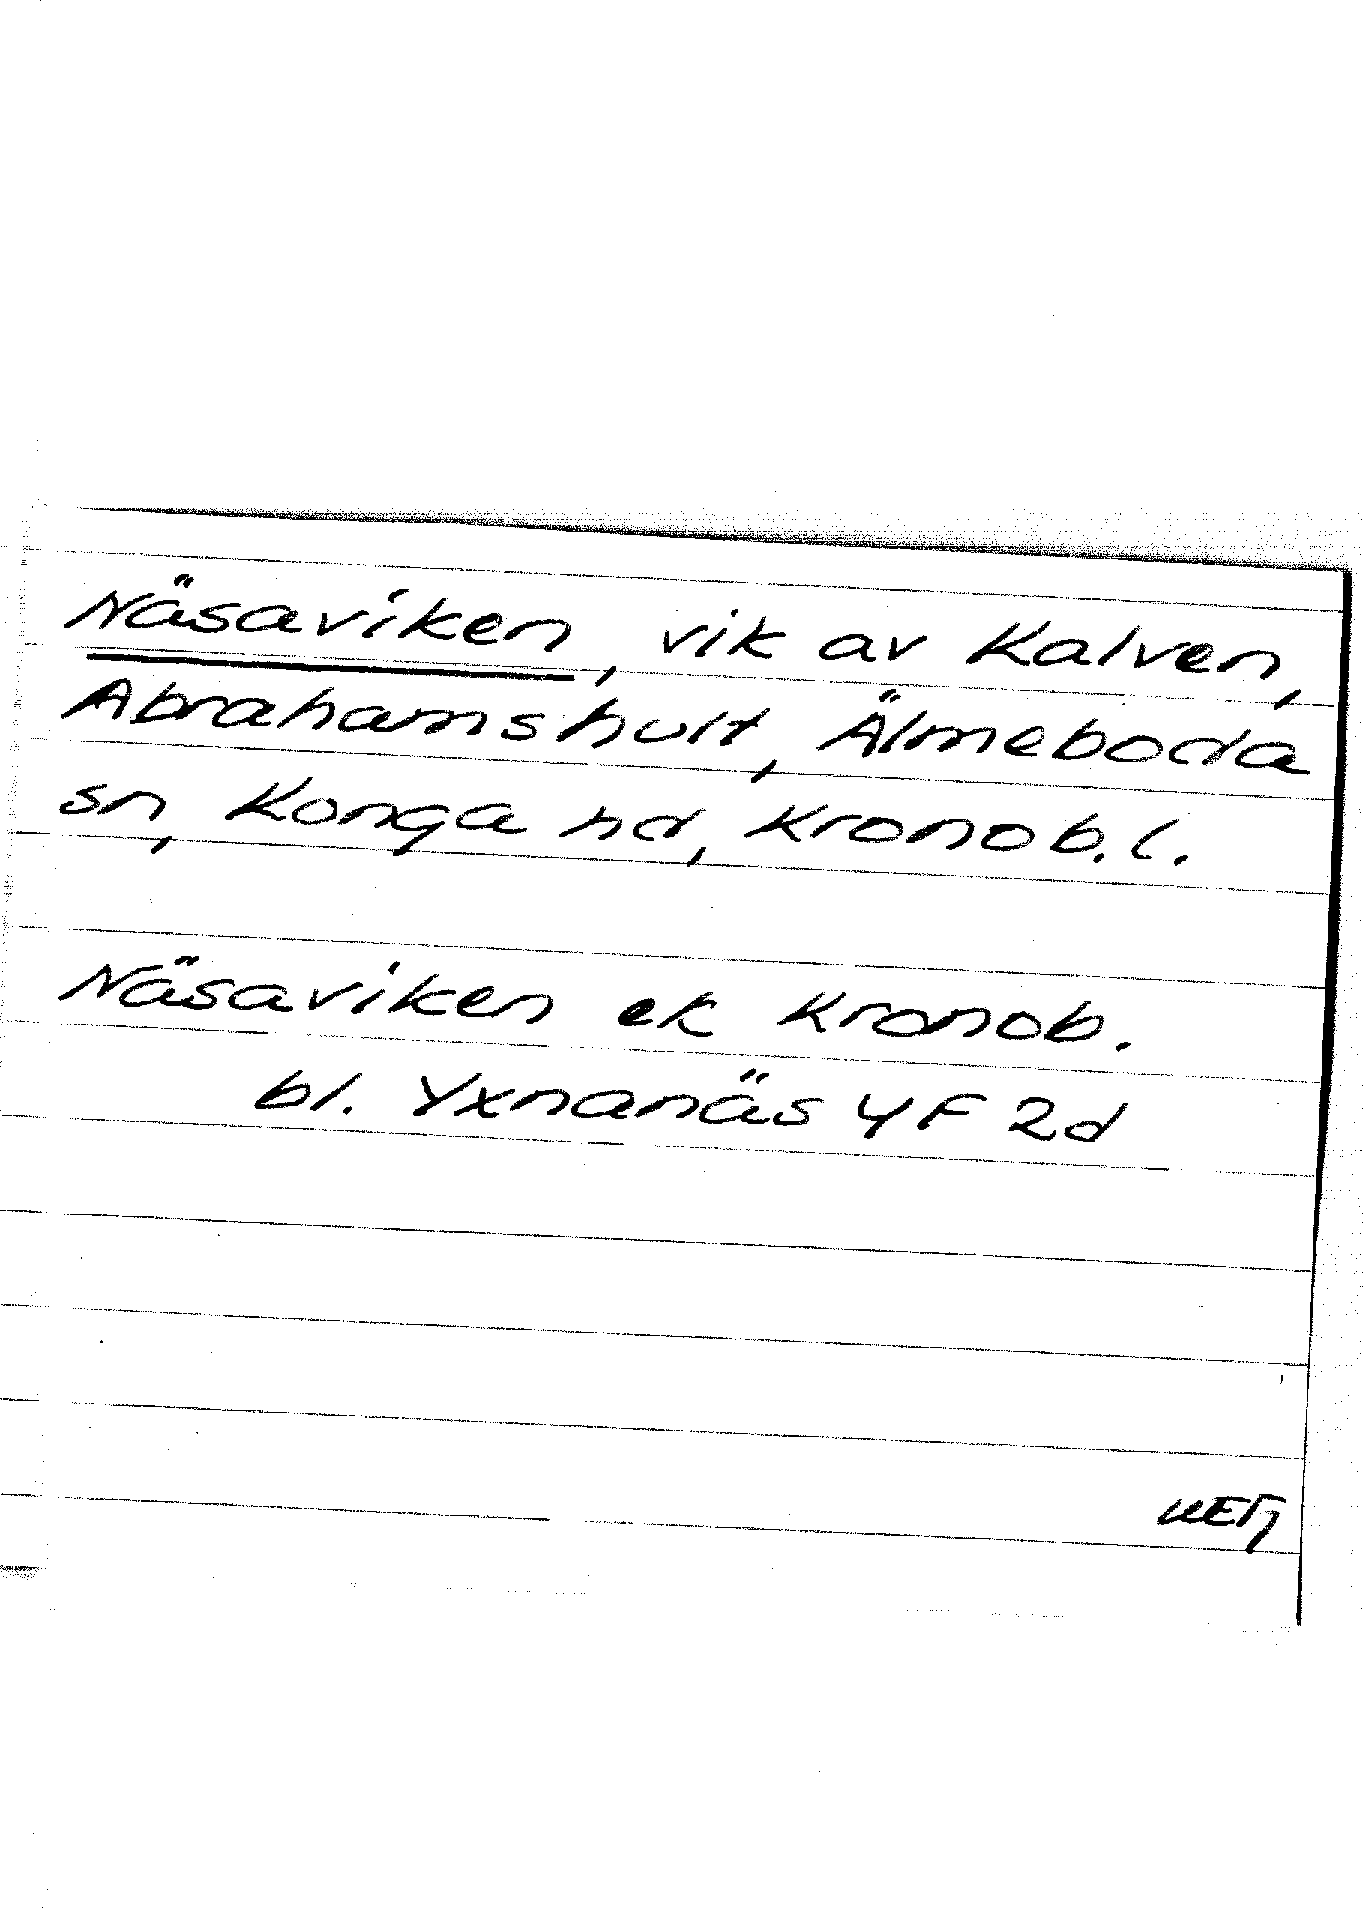 Näsaviken, vik av Kalven,
Abrahamshult, Älmeboda
sn, Konga hd, Kronob. l.
Näsaviken ek Kronob.
bl. Yxnanäs 4F 2d